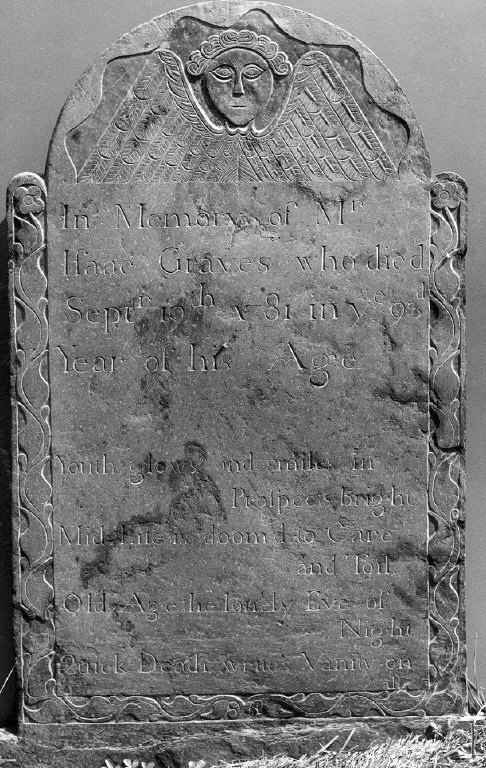 In Memory of Mr
Iſaac Graves who died
Septr 19th 1781 in ye 93d
Year of his Age
Youth glows and smiles in
Proſpects bright
Mid-Life is doom'd to Care
and Toil.
Old Age the lonely Eve of
Night
Quick Death writes Vanity on